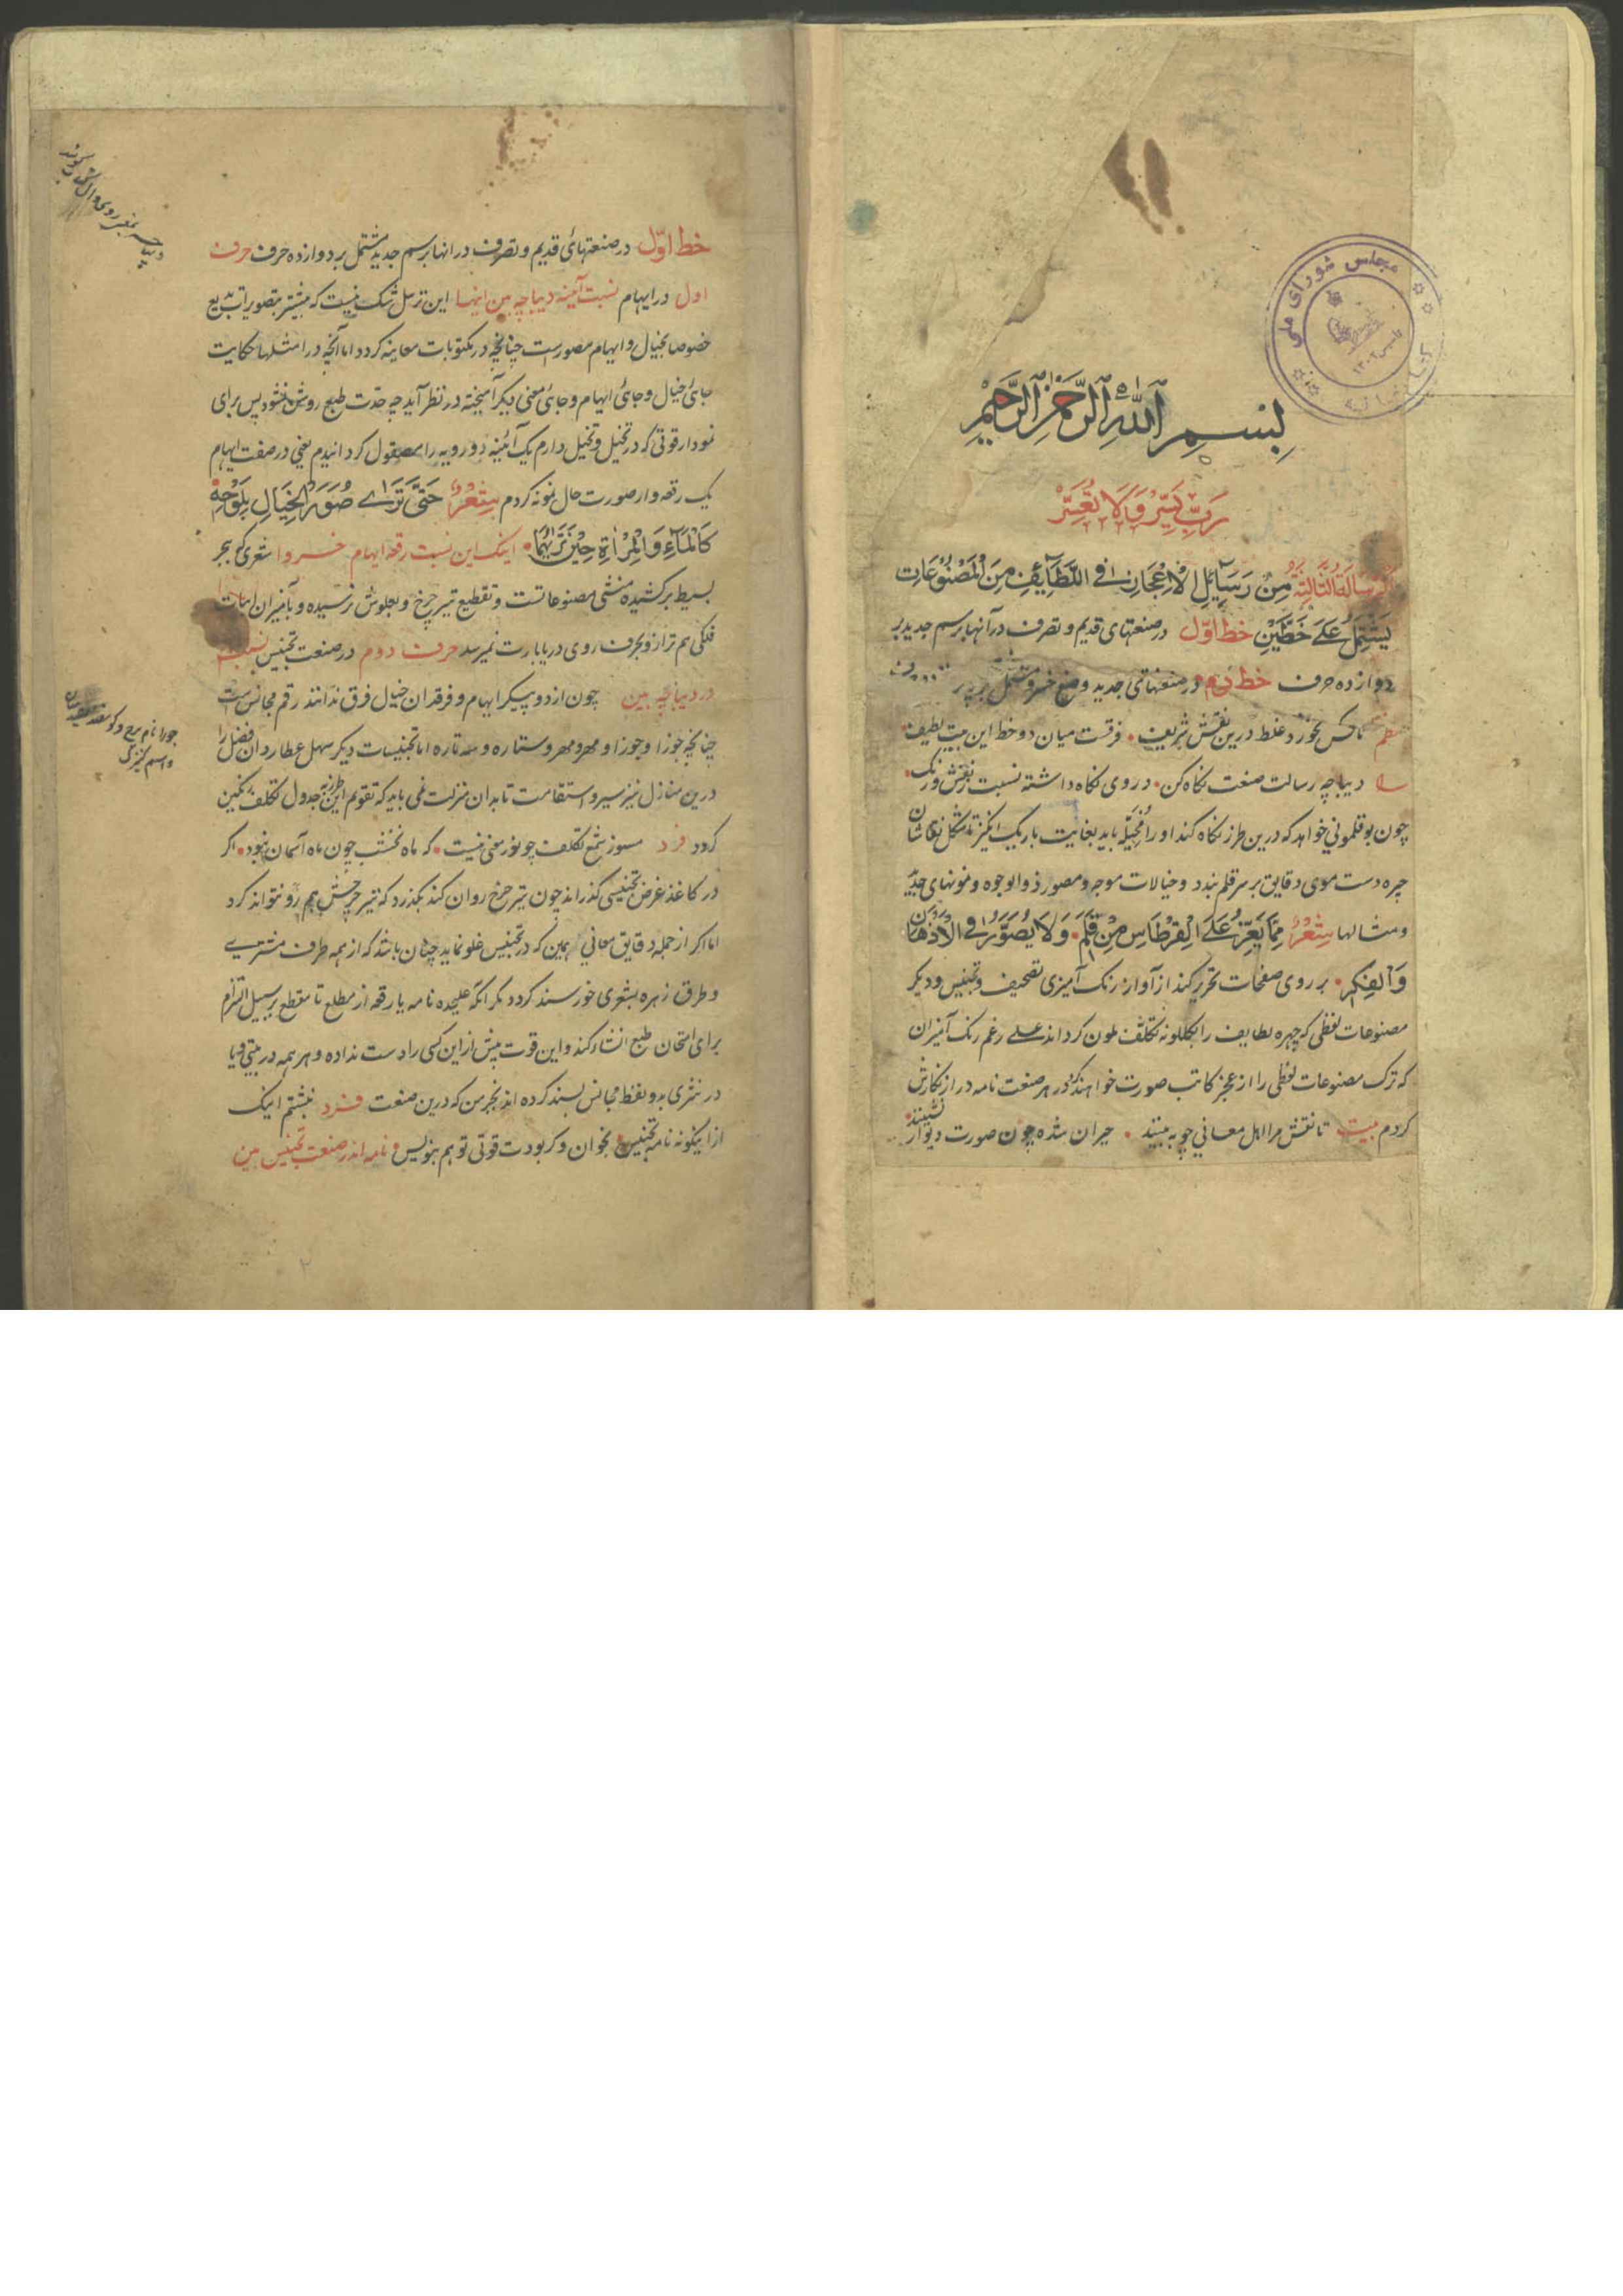 بِسْمِ اللهِ الرَّحْمٰنِ الرَّحِيْمِ
رَبِّ يَسِّرْ وَلَا تُعَسِّرْ
اَلرِّسَالَةُ الثَّالِثَةُ مِنْ رَسَآئِلِ الْاِعْجَازِ فِي اللَّطَآئِفِ مِنَ الْمَصْنُوْعَاتِ
يَشْتَمِلُ عَلَے خَطَّيْنِ خط اوّل در صنعتهای قدیم و تصرف در آنها برسم جدید بر
دوازده حرف خط دوم در صنعتهای جدید وضع خسرو مشتمل بر
نظم تا کس نخورد غلط درین نقش شریف • فرقست میان دو خط این بیت لطیف •
دیباچه رسالت صنعت نکاه کن • در روی نکاه داشته نسبت ز نقش و رنک •
چون بوقلمونی خواهد که درین طرز نکاه کند او را مُخَیَّله باید بغایت باریک انکیز تا مشکل نقاشان
چیره دست موی دقایق بر سر قلم بندد و خیالات موجه و مصور ذوالوجوه و نمونهای جدید
و مثالها شِعْرٌ مِمَّا يَعِزُّ عَلَے الْقِرْطَاسِ مِنْ قَلَمٍ • وَلَا يُصَوَّرُ فِي الْاَذْهَانِ
وَالْفِكَرِ • بر روی صفحات تحریر کند از آواز رنک آمیزی تصحیف و تجنیس و دیکر
مصنوعات لفظی که چهره لطایف را بکلکونه تکلف ملون کرداند علے رغم رنک آمیزان
که ترک مصنوعات لفظی را از عجز کاتب صورت خواهند کرد در هر صنعت نامه دراز نکارش
کردم بیت تا نقش مرا اهل معانی چو به بینند • حیران شده چون صورت دیوار نشینند •
مجلس شورای ملی
کتابخانه
تاسیس ۱۳۰۲
خط اوّل در صنعتهائ قدیم و تصرف در انها برسم جدید مشتمل بر دوازده حرف حرف
اول در ایهام نسبت آئینه دیباچه بین اینها این ترسل شک نیست که بیشتر بتصویرات بدیع
خصوصا بخیال و ایهام مصورست چنانچه در مکتوبات معاینه کردد اما آنچه در امثلها حکایت
جائ خیال و جائ ایهام و جائ معنی دیکر آمیخته در نظر آید چه حدت طبع روشن نشود پس برای
نمودار قوتی که در تخیل و تخییل دارم یک آئینه دو رویه را مصقول کردانیدم یعنی در صفت ایهام
یک رقعه وار صورت حال نمونه کردم شِعْرٌ حَتَّے تَرَاے صُوَرَ الْخَيَالِ بِلَوْحِهٖ
كَالْمَآءِ وَالْمِرْاٰةِ حِيْنَ تَرٰيهُمَا • اینک این نسبت رقعه ایهام خسروا شعری که ببحر
بسیط برکشیده منشی مصنوعاتست و تقطیع تیر چرخ و بعلوش نرسیده و بامیزان ابیات
فلکی هم ترازو بحرف روی دریا بارت نمیرسد حرف دوم در صنعت تجنیس نسبت
در دیباچه بین چون از دو پیکر ایهام و فرقدان خیال فرق ندانند رقم مجانس ست
چنانچه جوزا و جوزا و مهر و مهر و ستاره و سه تاره اما تجنیسات دیکر سهل عطاردان فضل را
درین منازل نیز سیر و استقامت تا بدان منزلت نمی باید که تقویم این طرز بجدول تکلف رنکین
کردد فرد مسوز شمع تکلف چو نور معنی نیست • که ماه نخشب چون ماه آسمان نبود • اکر
در کاغذ غرض تجنیسی کذراند چون تیر چرخ روان کند بکذرد که تیر چرخش هم رو نتواند کرد
اما اکر از جمله دقایق معانی همین که در تجنیس غلو نماید چنان باشد که از همه طرف مشتریے
و طرق زهره بشعری خورسند کردد مکر انکه علیحده نامه یا رقعه از مطلع تا مقطع بر سبیل التزام
برای امتحان طبع انشاء کند و این قوت پیش از این کسی را دست نداده و هر همه در بیتی و یا
در نثری بدو لفظ مجانس بسند کرده اند بجز من که درین صنعت فرد نبشتم اینک
ازاینکونه نامه تجنیس • بخوان و کر بودت قوتی تو هم بنویس • نامه اندر صنعت تجنیس بین